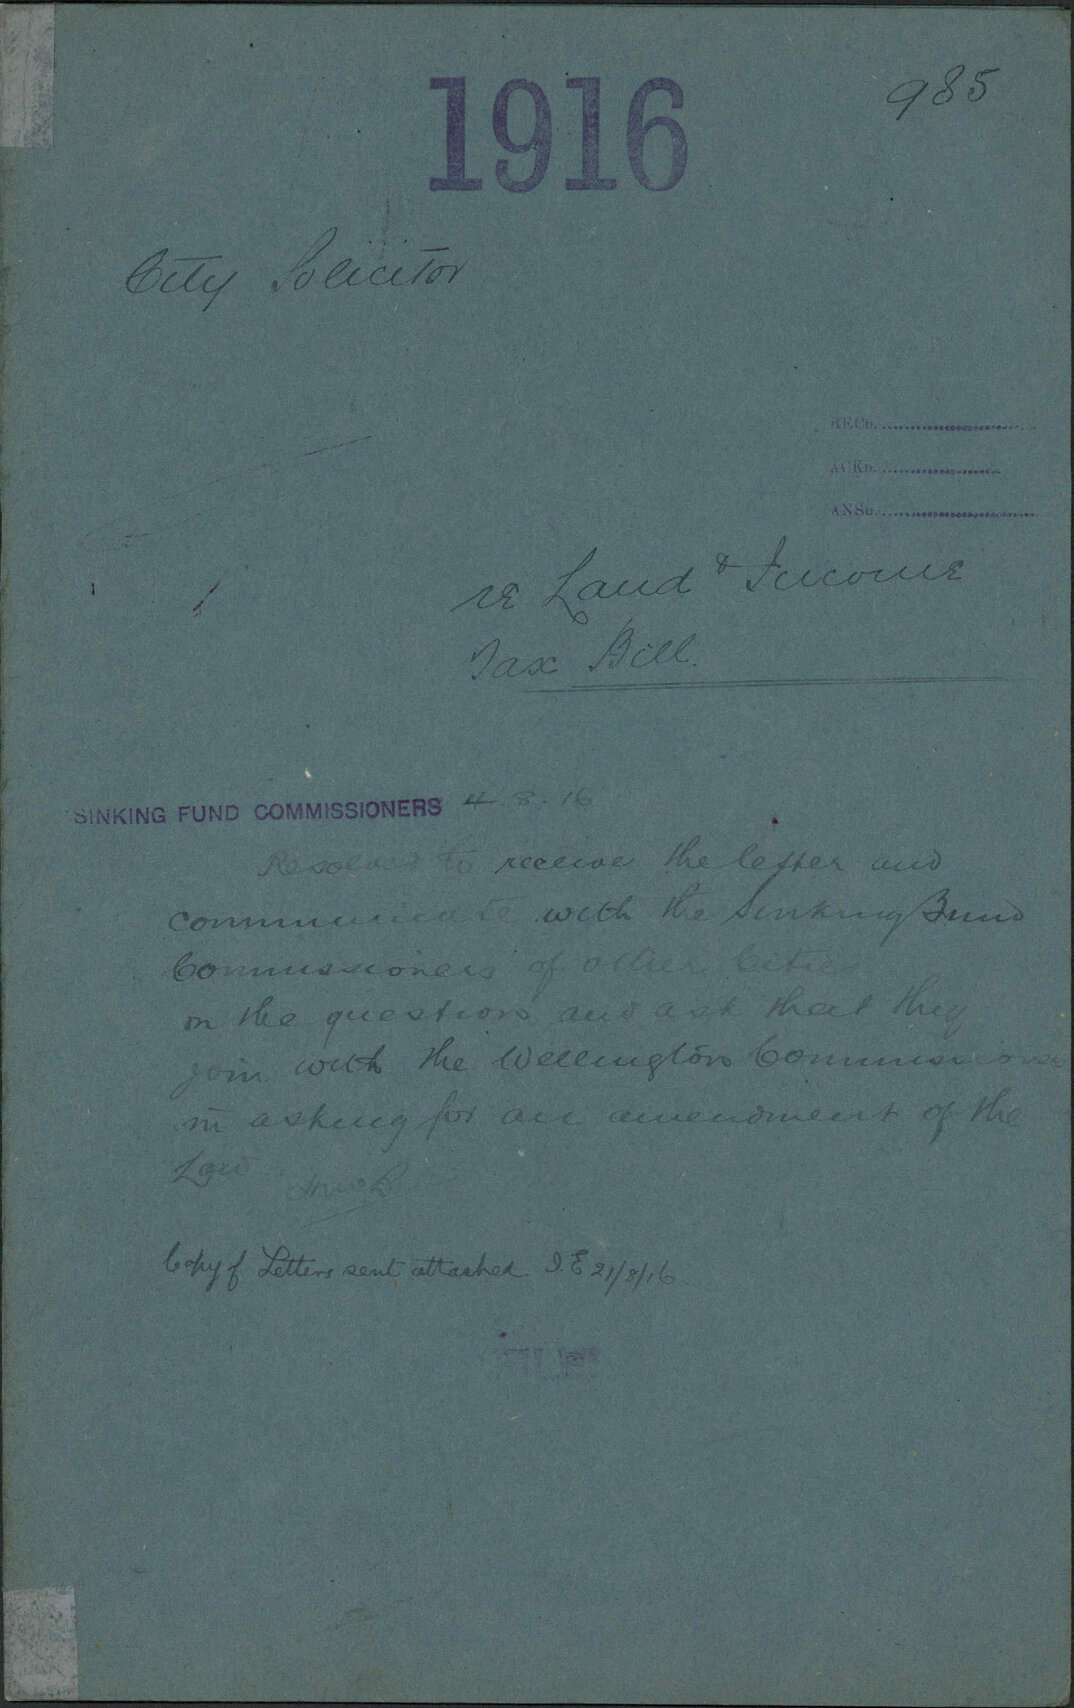 1916
985
City Solicitor
RECD.
ACKD.
ANSD.
re Land & Income
Tax Bill.
SINKING FUND COMMISSIONERS 4.8.16
Resolved to receive the letter and
communicate with the Sinking Fund
Commissioners of other Cities
on the question and ask that they
join with the Wellington Commissioners
in asking for an amendment of the
Law
Copy of Letters sent attached I.E 21/8/16
FILE